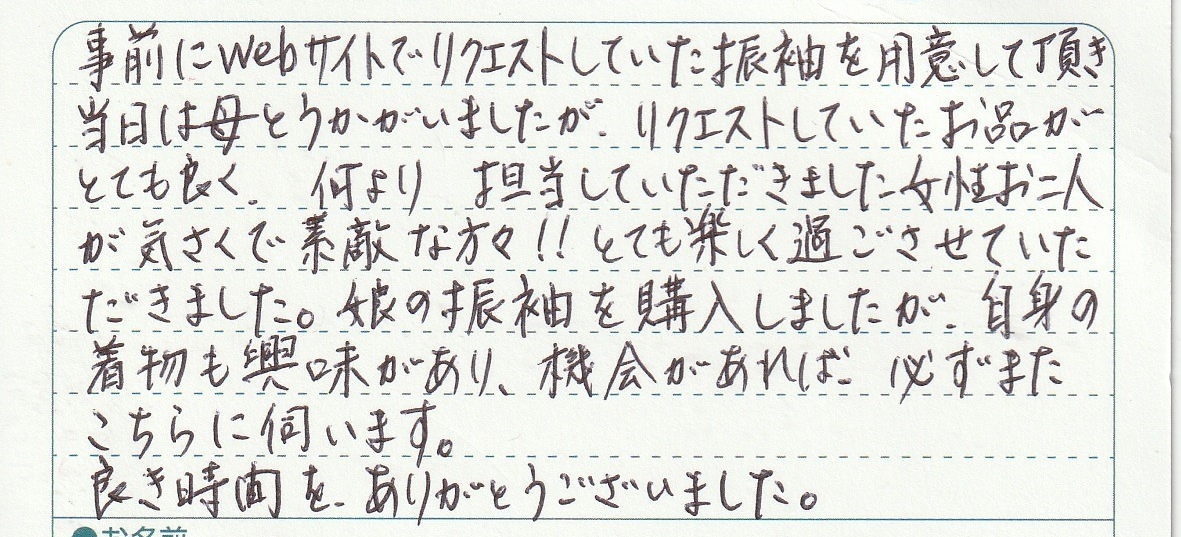 事前にWebサイトでリクエストしていた振袖を用意して頂き
当日は母とうかがいましたが、リクエストしていたお品が
とても良く、何より担当していただきました女性お二人
が気さくで素敵な方々!!とても楽しく過ごさせていた
だきました。娘の振袖を購入しましたが、自身の
着物も興味があり、機会があれば、必ずまた
こちらに伺います。
良き時間を、ありがとうございました。
●お名前